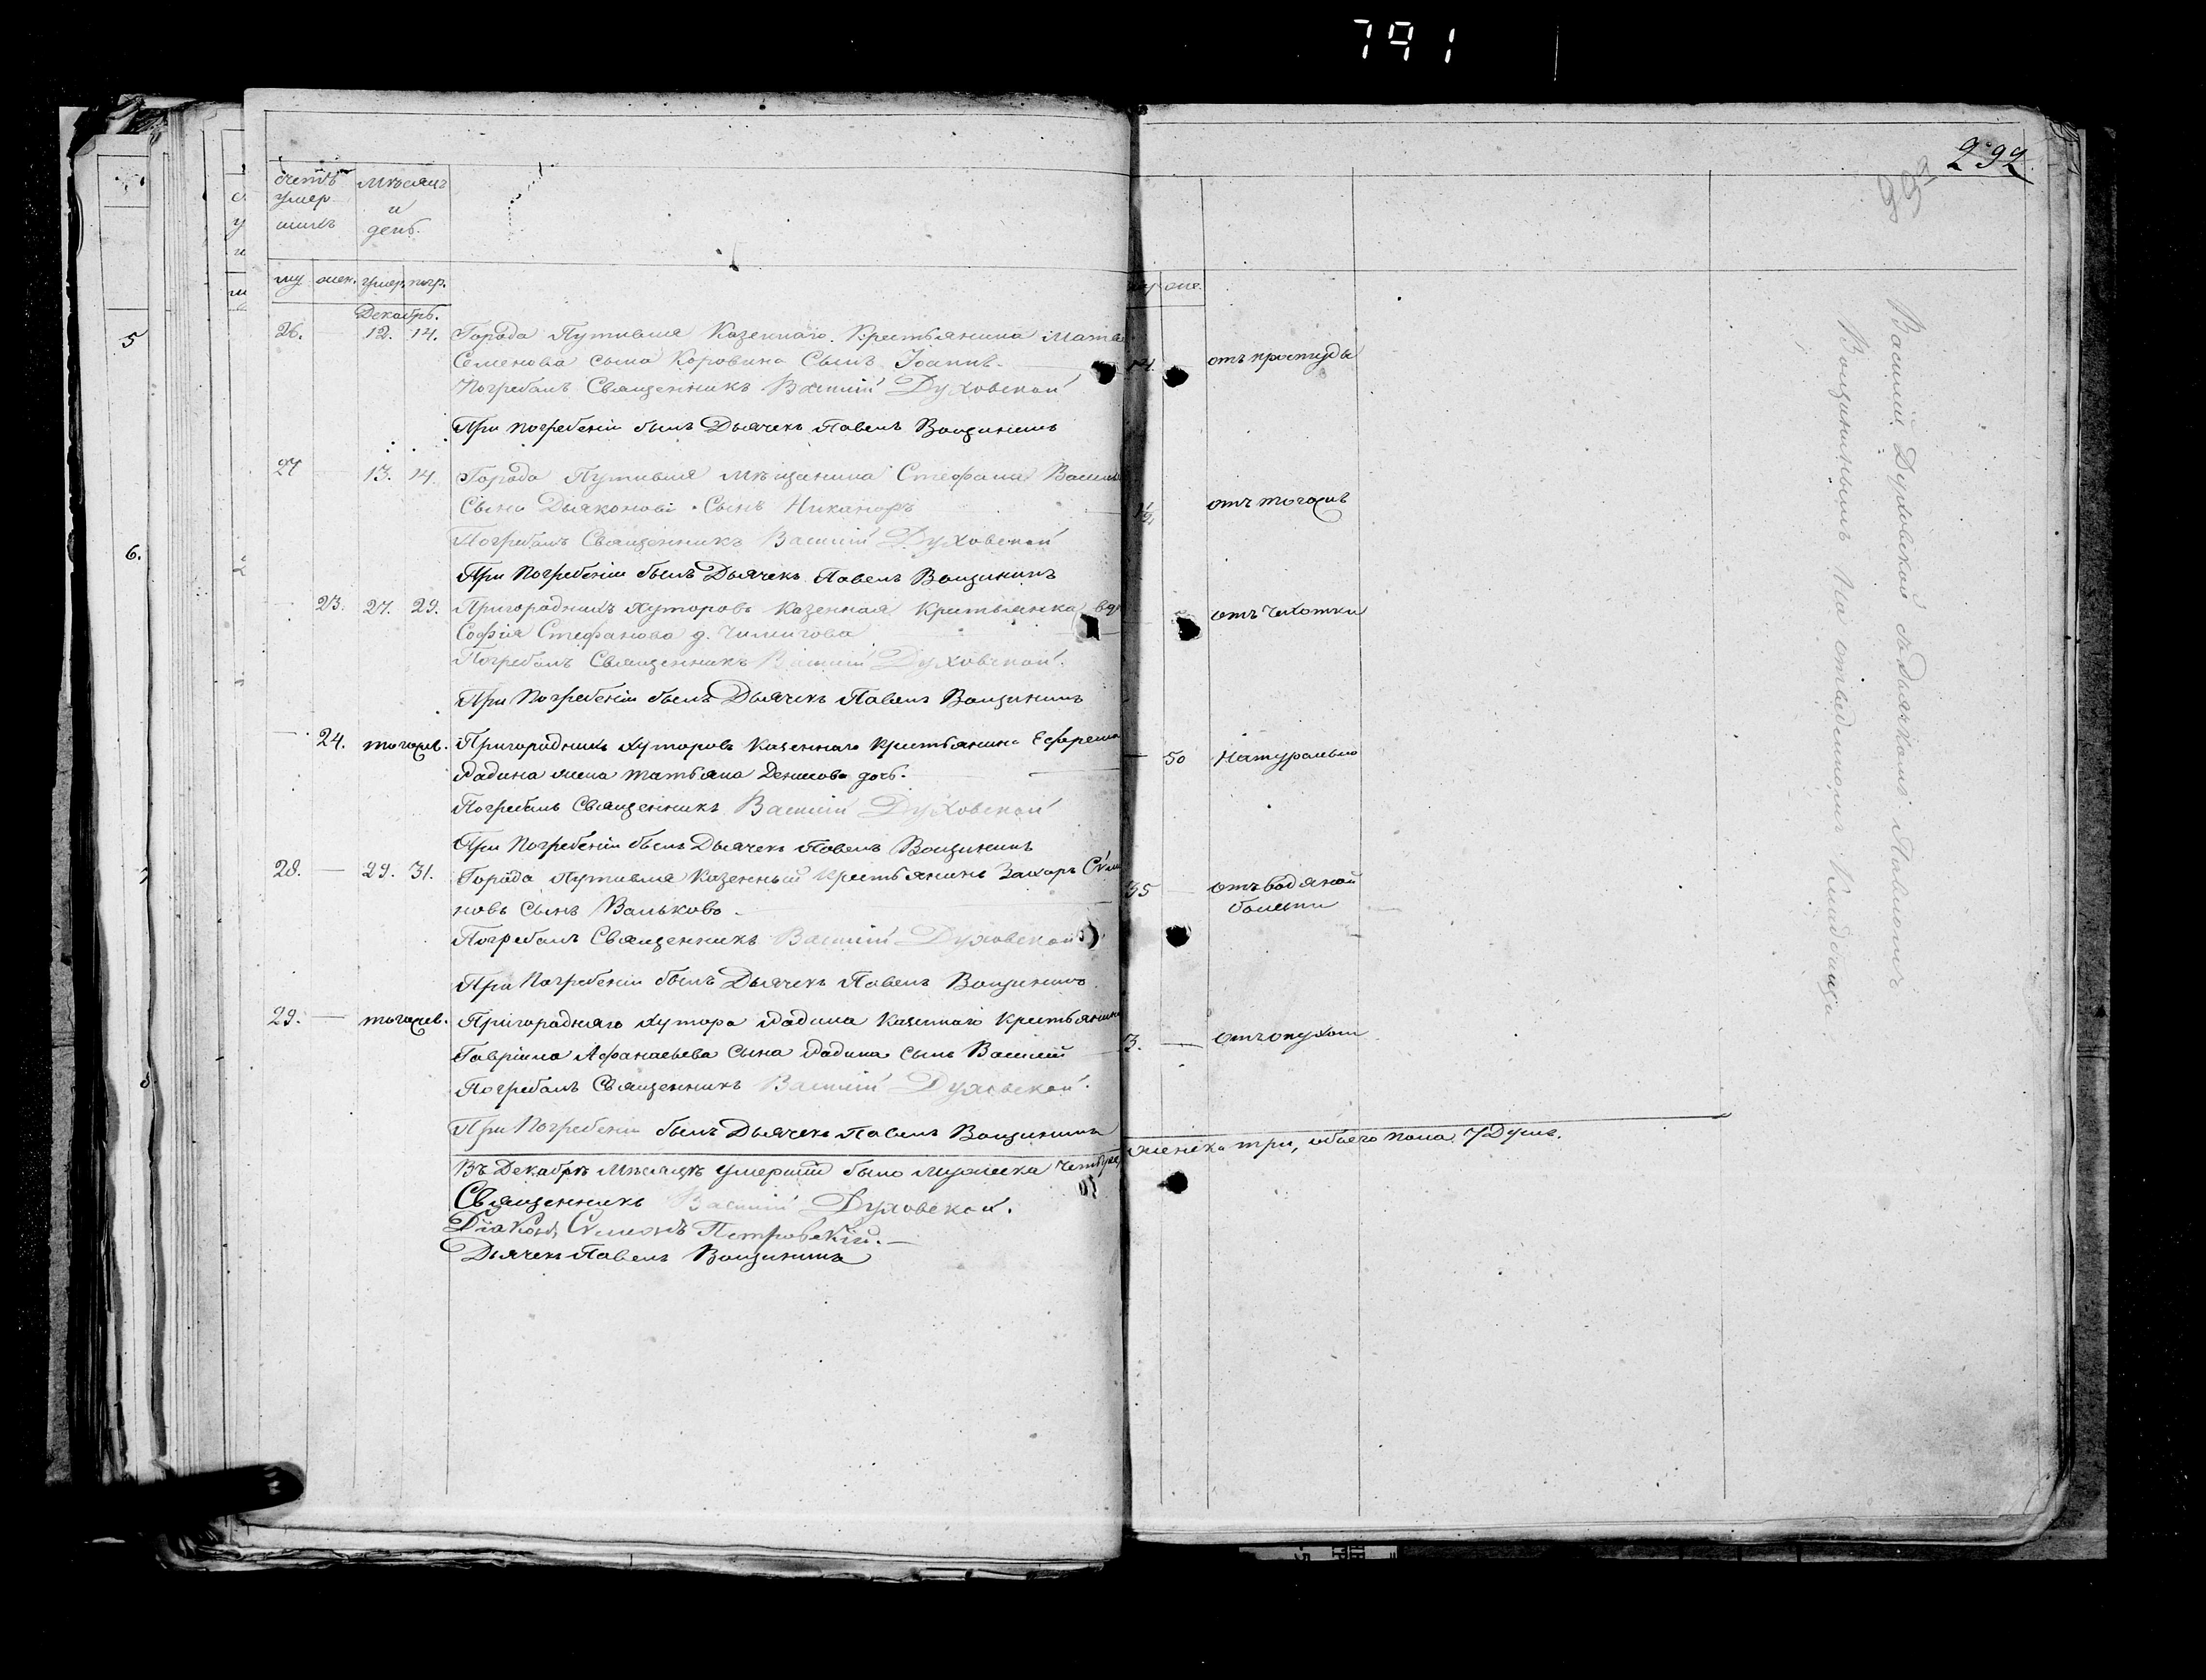 791
292
счетъ умершихъ
мѣсяцъ и день.
му жен. умер. погр.
Декабрь.
26. 12. 14. Города Путивля Казеннаго Крестьянина Матв
Семенова сына Коровина Сынъ Іоаннъ. отъ простуды
Погребалъ Священникъ Василій Духовской
При погребеніи былъ Дьячекъ Павелъ Вощининъ
27 — 13. 14. Города Путивля мѣщанина Стефана Васил
Сына Дьяконова Сынъ Никаноръ отъ тогожъ
Погребалъ Священникъ Василій Духовской
При Погребеніи былъ Дьячекъ Павелъ Вощининъ
— 23. 27. 29. Пригородныхъ Хуторовъ Казенная Крестьянка вд
Софія Стефанова д. отъ Чахотки
Погребалъ Священникъ Василій Духовской.
При Погребеніи былъ Дьячекъ Павелъ Вощининъ
— 24. тогожъ. Пригородныхъ Хуторовъ Казеннаго Крестьянина Ефрема
Радина жена Татьяна Денисова дочь. — 50 Натурально
Погребалъ Священникъ Василій Духовской
При Погребеніи былъ Дьячекъ Павелъ Вощининъ
28. — 29. 31. Города Путивля Казенный Крестьянинъ Захаръ Семе
новъ Сынъ Вальково. 35 — отъ водяной болезни
Погребалъ Священникъ Василій Духовской
При Погребеніи былъ Дьячекъ Павелъ Вощининъ
29. — тогожъ. Пригороднаго Хутора Радина Казеннаго Крестьянина
Гавріила Афанасьева Сына Радина сынъ Василій 3. — отъ опухоли
Погребалъ Священникъ Василій Духовской.
При Погребеніи былъ Дьячекъ Павелъ Вощининъ
Въ Декабрѣ Мѣсяцѣ умерший было мужеска четыре, женска три, обоего пола 7 Душъ.
Священникъ Василій Духовской.
Діаконъ Симеонъ Петровскій.
Дьячекъ Павелъ Вощининъ
Василій Духовской съ дьячкомъ Павломъ
Вощининымъ На отведенномъ Кладбище
5
6.
7
8